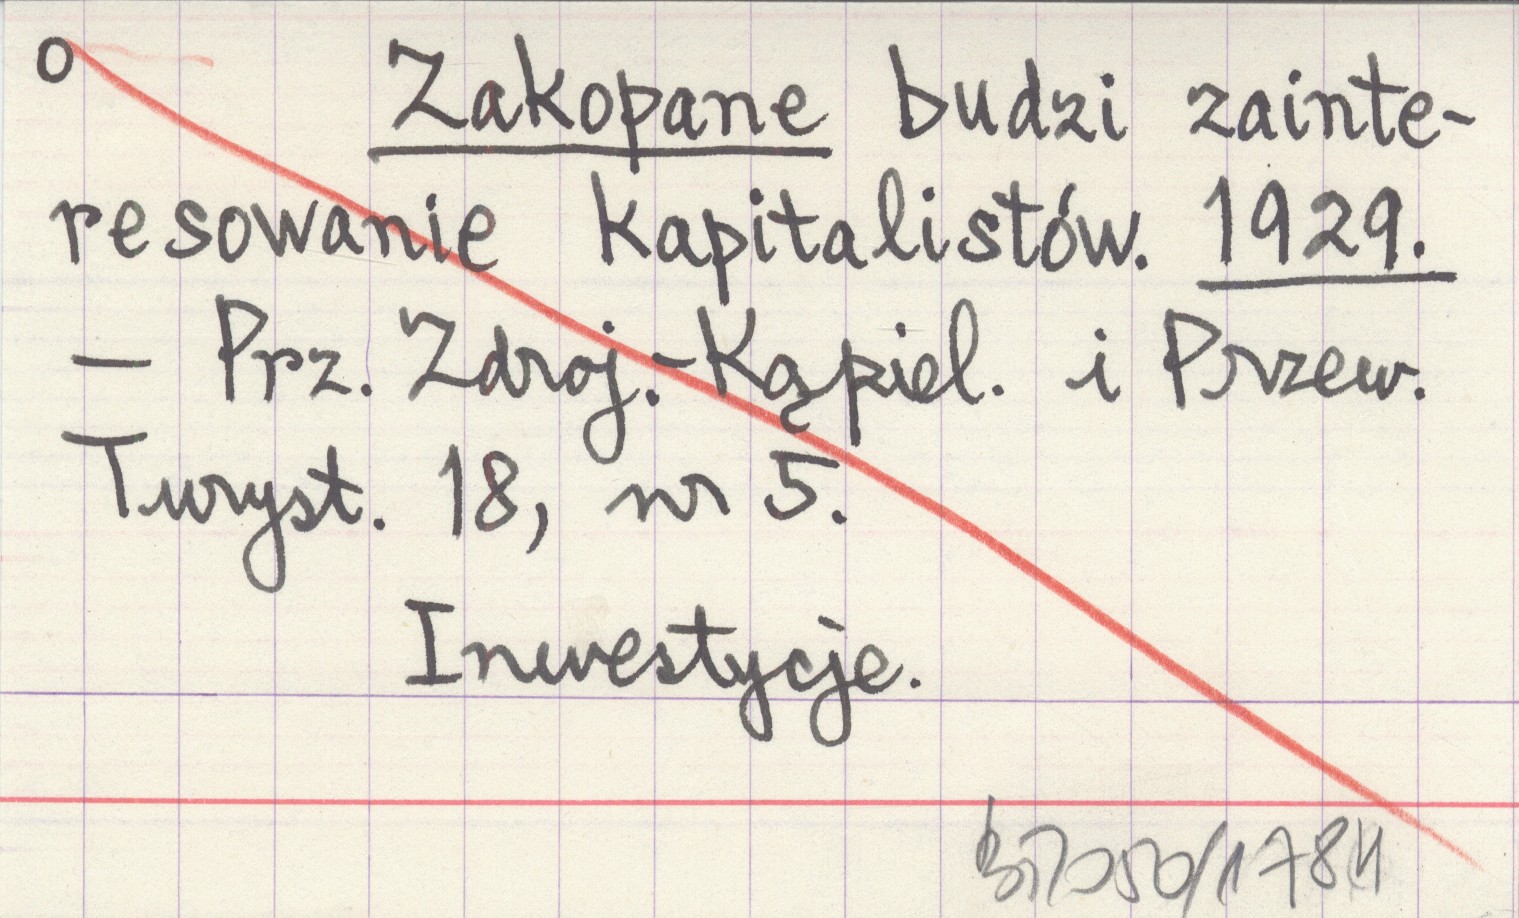 o Zakopane budzi zainte-
resowanie kapitalistów. 1929.
– Prz. Zdroj.-Kąpiel. i Przew.
Turyst. 18, nr 5.
Inwestycje.